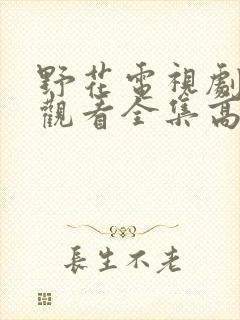 野花電視劇
觀看全集高
長生不老